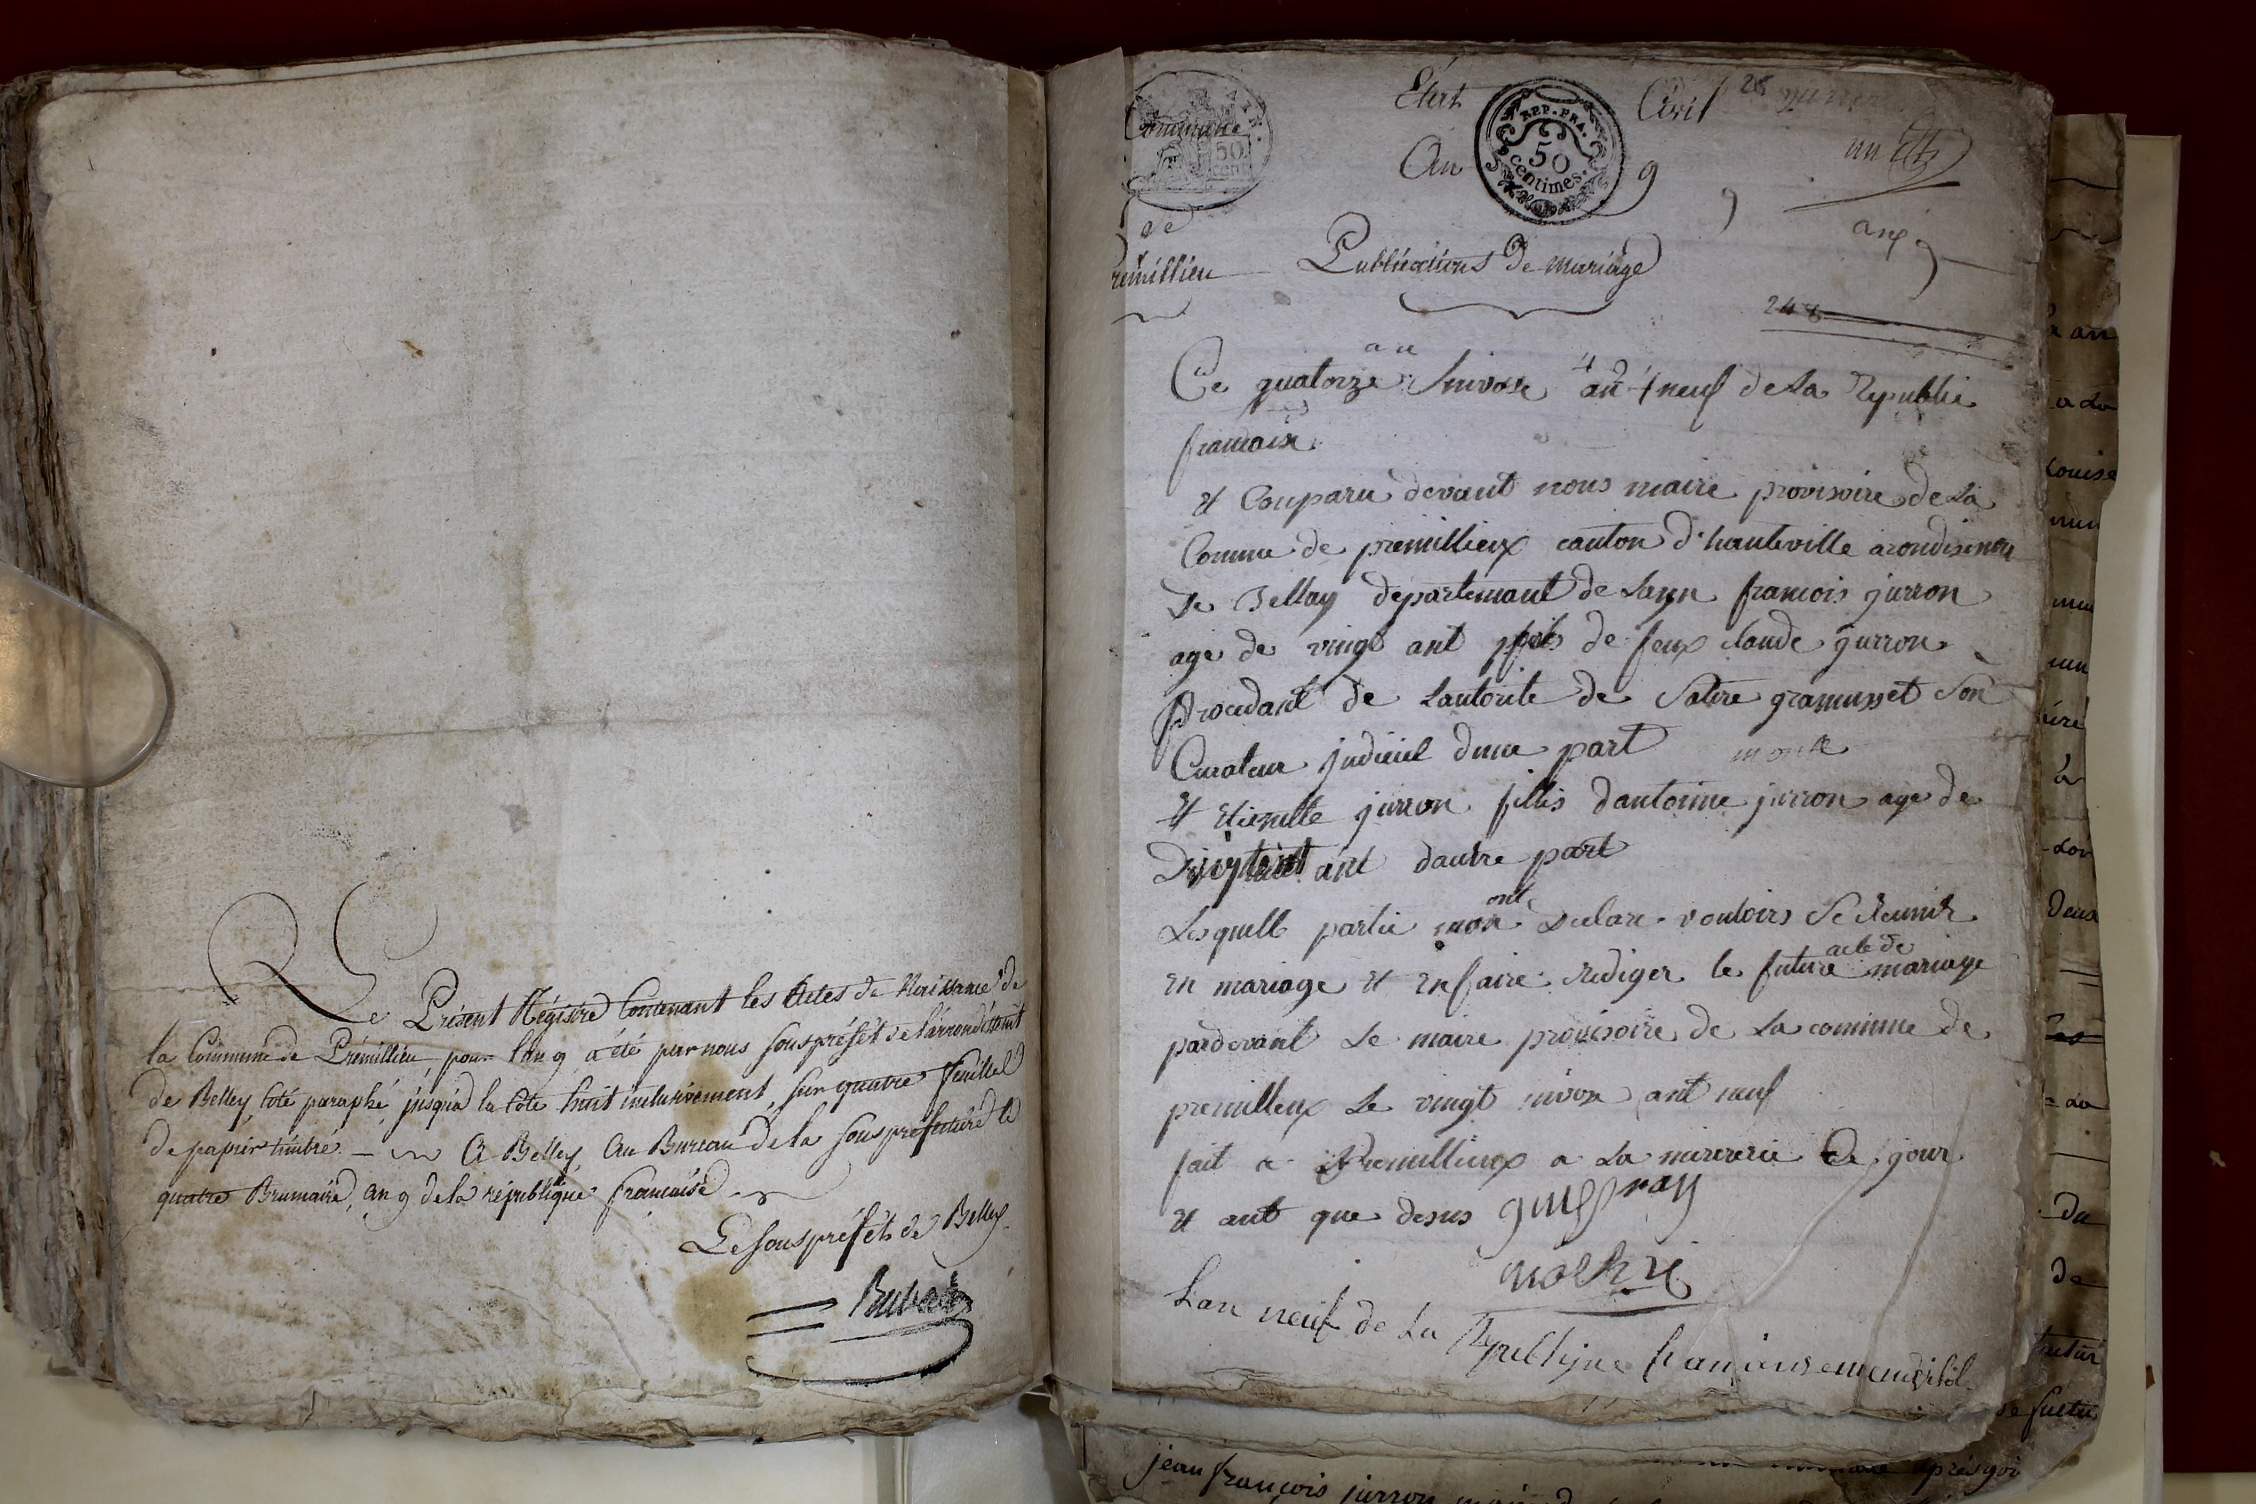 Le Présent Régistre Contenant les Actes de Naissance de
la Commune de Prémillieu, pour l'An 9 a été par nous souspréfét de l'arrondissemt
de Belley coté paraphé jusqu'à la Cote huit inclusivement, sur quatre feuillets
de papier timbré. — A Belley Au Bureau de la souspréfecture le
quatre Brumaire, an 9 de la république francaise
Le souspréfét de Belley
Commune
50
cent
de
Prémillieu
Etat Civil
An 9
REP. FRA.
50
centimes.
un
an 9
248
Publications De mariage
Ce quatorze nivose an neuf de La Republi
francoise
et Conparu devant nous maire provisoire de La
Comune de premillieux canton d'hauteville arondisemen
De Bellay departemant de Layn francois jurron
age de vingt ant fils de feux claude jurron
procedant de Lautorite de gramusset son
Curateur judiciel dune part
et Etienette jurron fillis dantoinne jurron age de
ant dautre part
Lesquelle partie mon ont declare vouloirs Se Reunir
en mariage et en faire Rediger le future acte de mariage
pardevant Le maire provisoire de La comune de
premilleux Le vingt nivose ant neuf
fait a Premillieux a La mirerie Ce jour
et ant que desus guiffray
Lan neuf de La Republique
jean francois jurron